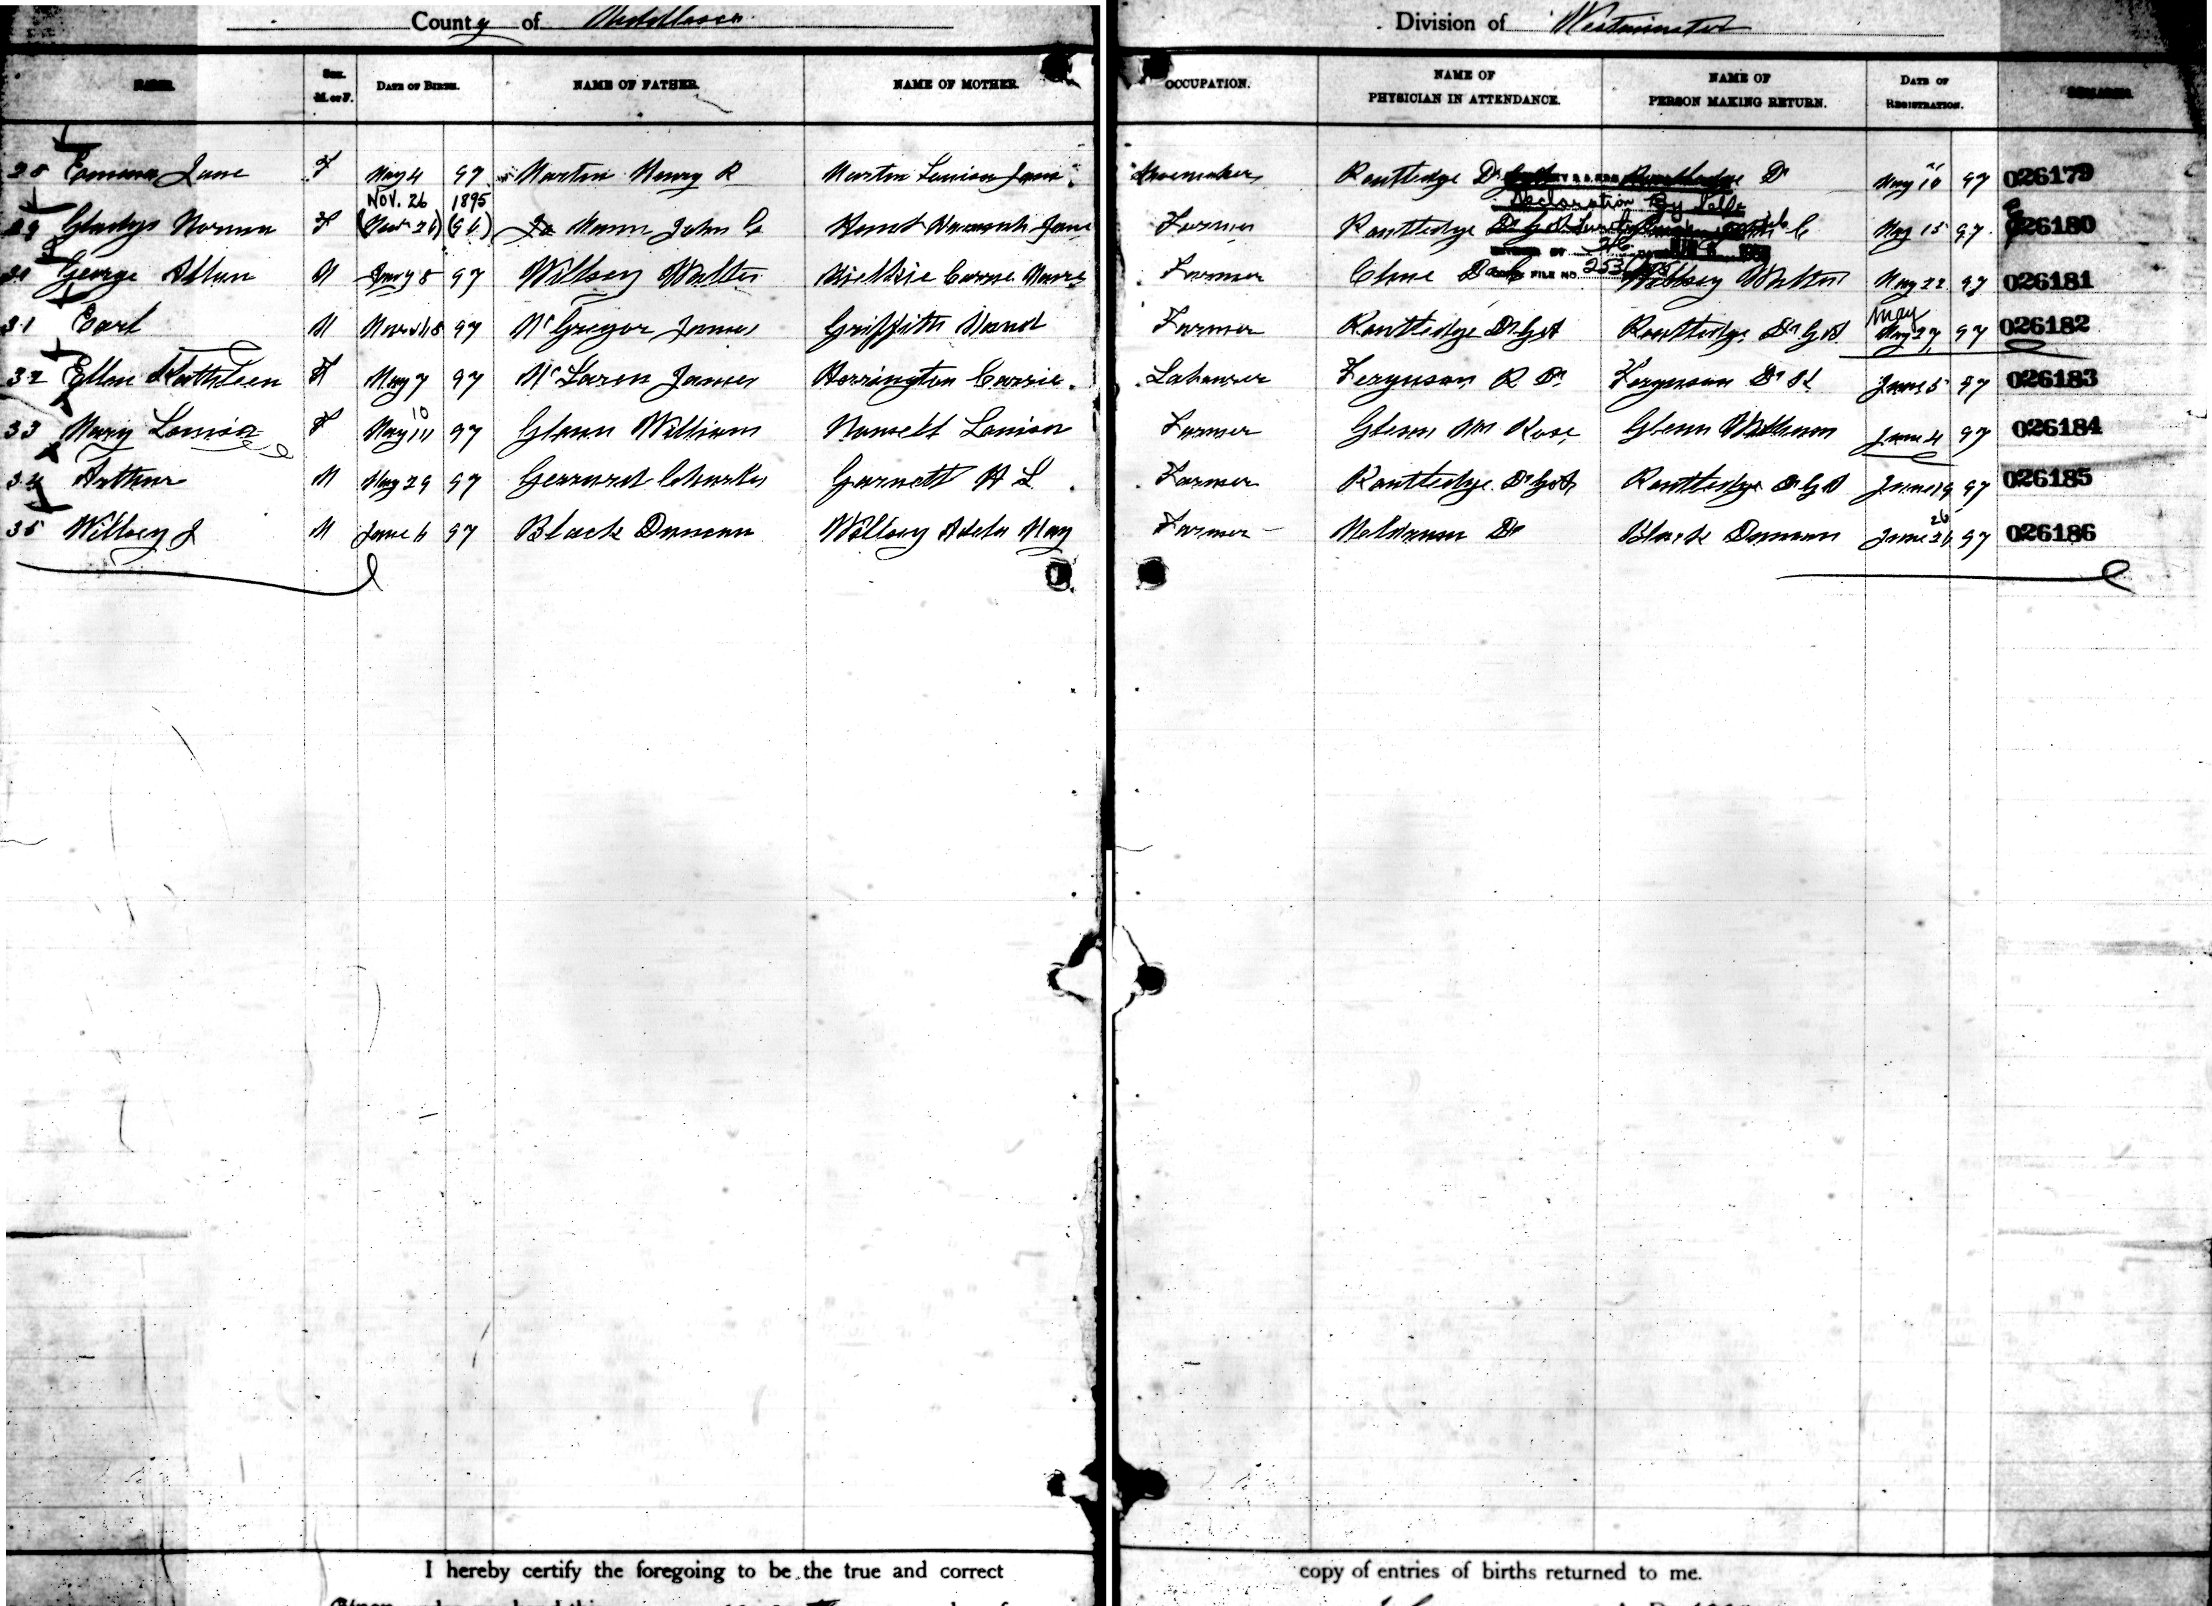 County of Middlesex Division of Westminster
NAME. SEX. M. or F. DATE OF BIRTH. NAME OF FATHER. NAME OF MOTHER. OCCUPATION. NAME OF PHYSICIAN IN ATTENDANCE. NAME OF PERSON MAKING RETURN. DATE OF REGISTRATION. REMARKS.
28 Emma Jane F May 4 97 Martin Henry R Martin Louisa Jane Shoemaker Routledge Dr Routledge Dr May 10 97 026179
NOV. 26 1895 Declaration By Self
29 Gladys Norma F (Nov 26) (96) Mann John C Hannah Jane Farmer Routledge May 15 97 026180
FILE NO.
George Allan M 8 97 Willsey Walter Carrie Farmer Cline Dr Willsey Walter May 22 97 026181
May
31 Earl M March 8 97 McGregor James Griffith Maud Farmer Routledge Dr G A Routledge Dr G A May 27 97 026182
32 Ellen Kathleen F May 7 97 McLaren James Harrington Carrie Labourer Ferguson R Dr Ferguson Dr R June 5 97 026183
10
33 Mary Louisa F May 97 Glenn William Louisa Farmer Glenn Mrs Rose Glenn William June 4 97 026184
34 Arthur M May 29 97 Gerrard Charles Garnett A L Farmer Routledge Dr G A Routledge Dr G A June 19 97 026185
26
35 Willsey J M June 6 97 Black Duncan Willsey Adela May Farmer Meldrum Dr Black Duncan June 26 97 026186
I hereby certify the foregoing to be the true and correct copy of entries of births returned to me.